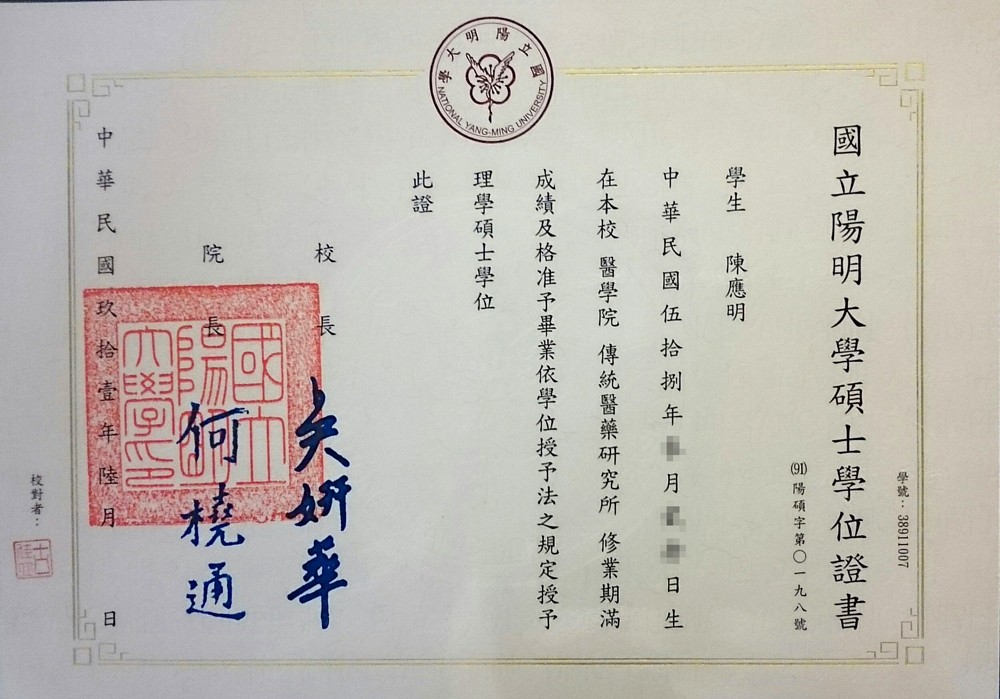 國立陽明大學
NATIONAL YANG-MING UNIVERSITY
學號：38911007
國立陽明大學碩士學位證書
(91)陽碩字第〇一九八號
學生 陳應明
中華民國伍拾捌年 月 日生
在本校 醫學院 傳統醫藥研究所 修業期滿
成績及格准予畢業依學位授予法之規定授予
理學碩士學位
此證
校長 吳妍華
院長 何橈通
國立陽明大學印
中華民國玖拾壹年陸月 日
校對者：